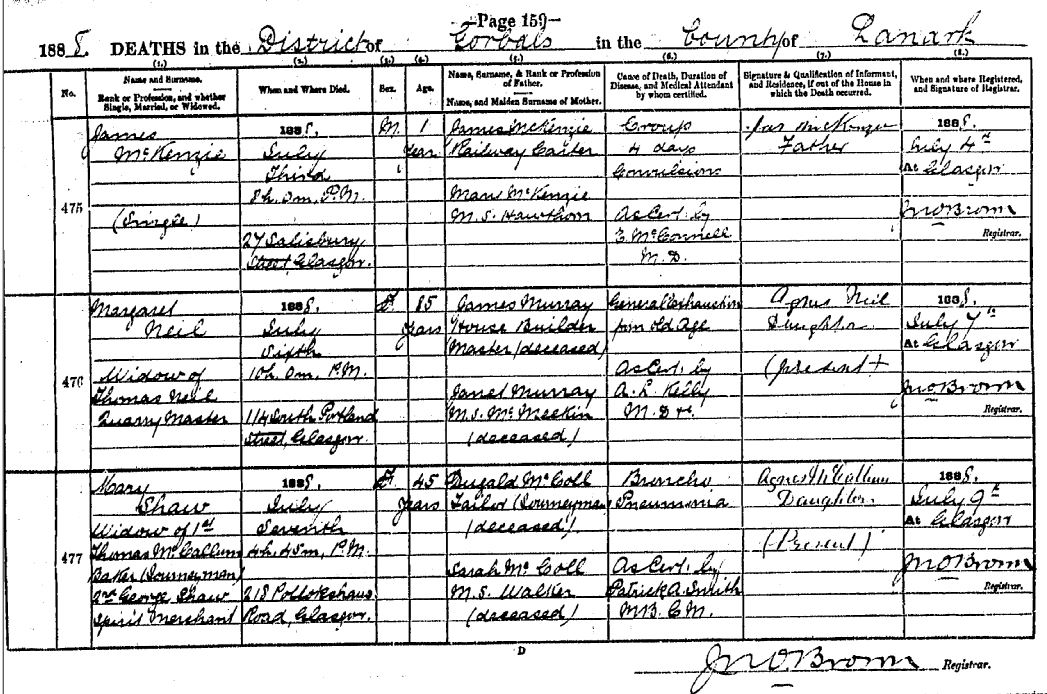 Page 159
1888. DEATHS in the District of Gorbals in the County of Lanark
(1.) (2.) (3.) (4.) (5.) (6.) (7.) (8.)
No.
Name and Surname.
Rank or Profession, and whether
Single, Married, or Widowed.
When and Where Died.
Sex.
Age.
Name, Surname, & Rank or Profession
of Father.
Name, and Maiden Surname of Mother.
Cause of Death, Duration of
Disease, and Medical Attendant
by whom certified.
Signature & Qualification of Informant,
and Residence, if out of the House in
which the Death occurred.
When and where Registered,
and Signature of Registrar.
475
James
McKenzie
(Single)
1888.
July
Third
8h. 0m. P.M.
27 Salisbury
Street, Glasgow.
M.
1
Year
James McKenzie
Railway Carter
Mary McKenzie
M.S. Hawthorn
Croup
4 days
Convulsions
As Cert. by
E. McConnell
M.D.
Jas McKenzie
Father
1888.
July 4th
At Glasgow
Jno Brown
Registrar.
476
Margaret
Neil
Widow of
Thomas Neil
Quarry Master
1888.
July
Sixth
10h. 0m. P.M.
114 South Portland
Street, Glasgow.
F.
85
Years
James Murray
House Builder
Master (deceased)
Janet Murray
M.S. McMeekin
(deceased)
General Exhaustion
from old Age
As Cert. by
A. L. Kelly
M.D. &c.
Agnes Neil
Daughter
(present)
1888.
July 7th
At Glasgow
Jno Brown
Registrar.
477
Mary
Shaw
Widow of 1st
Thomas McCallum
Baker (Journeyman)
2nd George Shaw
Spirit Merchant
1888.
July
Seventh
4h. 45m. P.M.
218 Pollokshaws
Road, Glasgow.
F.
45
Years
Dugald McColl
Tailor (Journeyman)
(deceased)
Sarah McColl
M.S. Walker
(deceased)
Broncho
Pneumonia
As Cert. by
Patrick A. Smith
M.B. C.M.
Agnes McCallum
Daughter
(Present)
1888.
July 9th
At Glasgow
Jno Brown
Registrar.
D
Jno Brown Registrar.